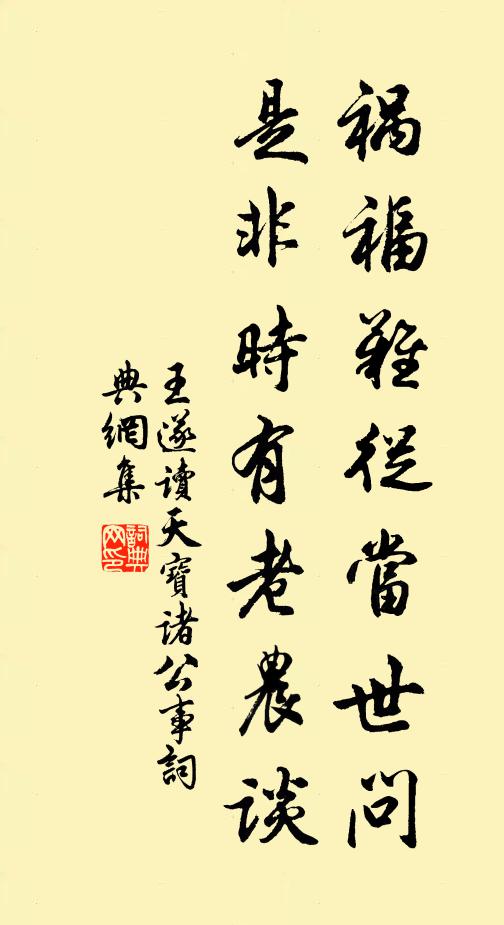 禍福難從當世問
是非時有老農談
王遂讀天寶諸公事詞
典網集
詞典
网印